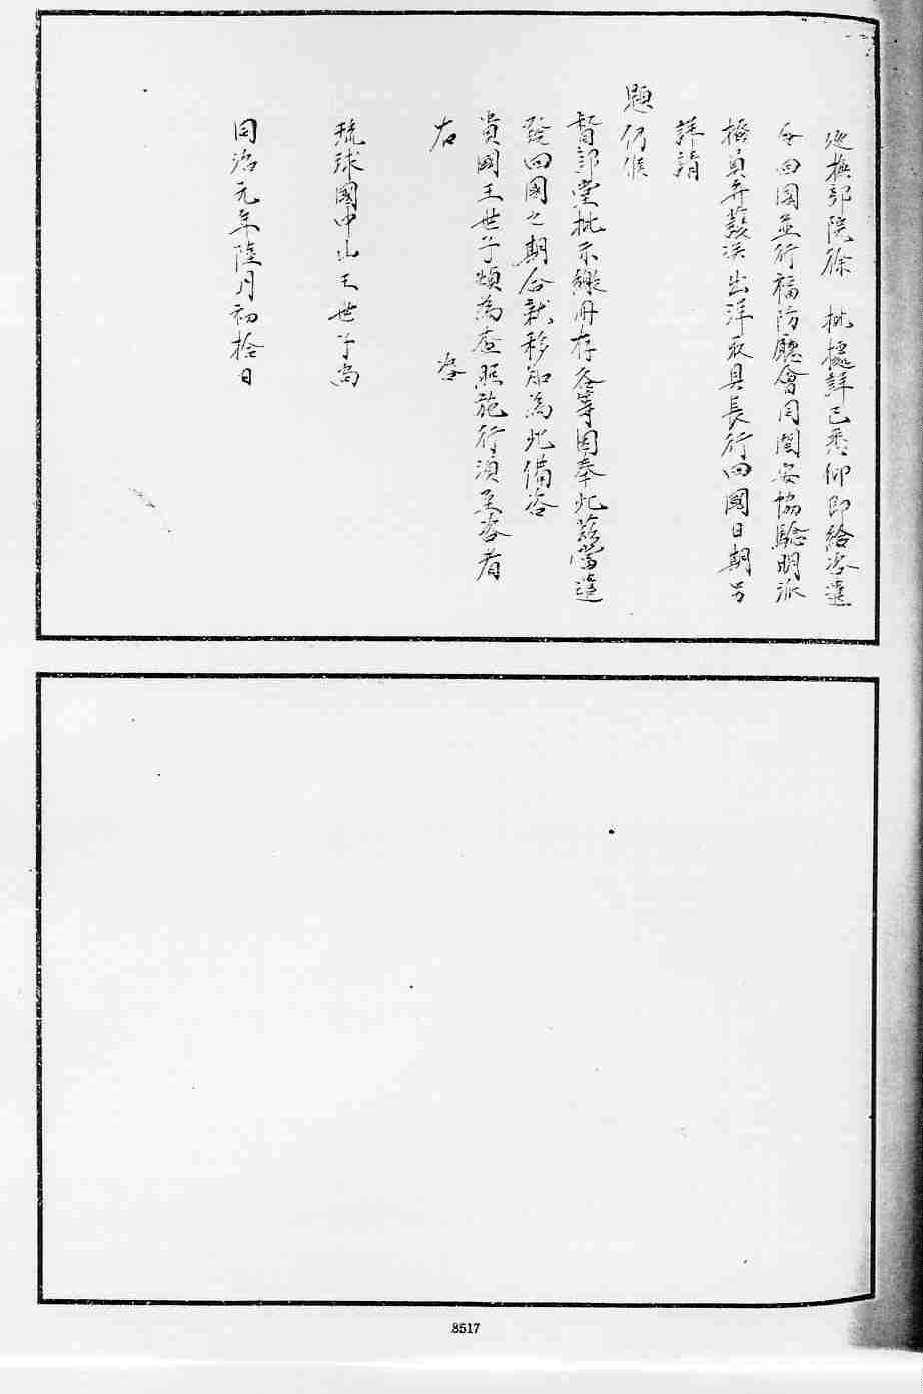 巡撫部院徐　批據詳已悉仰即給咨遣
令回國並行福防廳會同閩安協驗明派
撥員弁護送出洋取具長行回國日期另
詳請
題仍候
督部堂批示繳冊存咨等因奉此茲當遣
發回國之期合就移知為此備咨
貴國王世子煩為查照施行須至咨者
右　　　　　　　　咨
琉球國中山王世子尚
同治元年陸月初拾日
8517